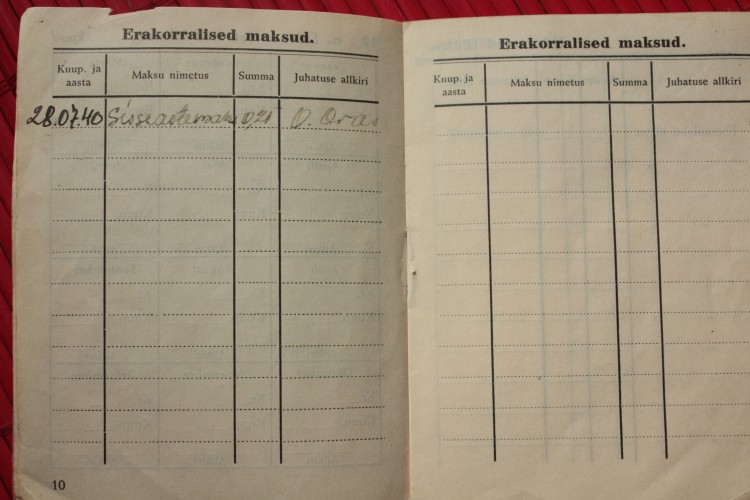 Erakorralised maksud.
Kuup. ja aasta Maksu nimetus Summa Juhatuse allkiri
28.07.40 Sisseastemaks 0,25 O. Oras
10
Erakorralised maksud.
Kuup. ja aasta Maksu nimetus Summa Juhatuse allkiri